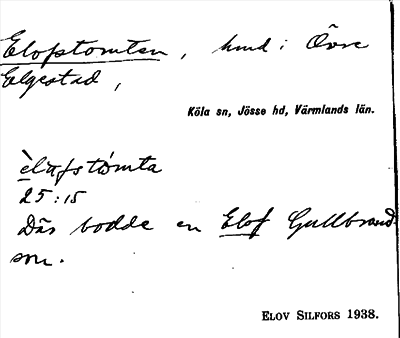 Elofstomten, hmd i Övre
Elgestad,
Köla sn, Jösse hd, Värmlands län.
èlåfstòmta
25:15
Där bodde en Elof Gullbrand-
son.
ELOV SILFORS 1938.